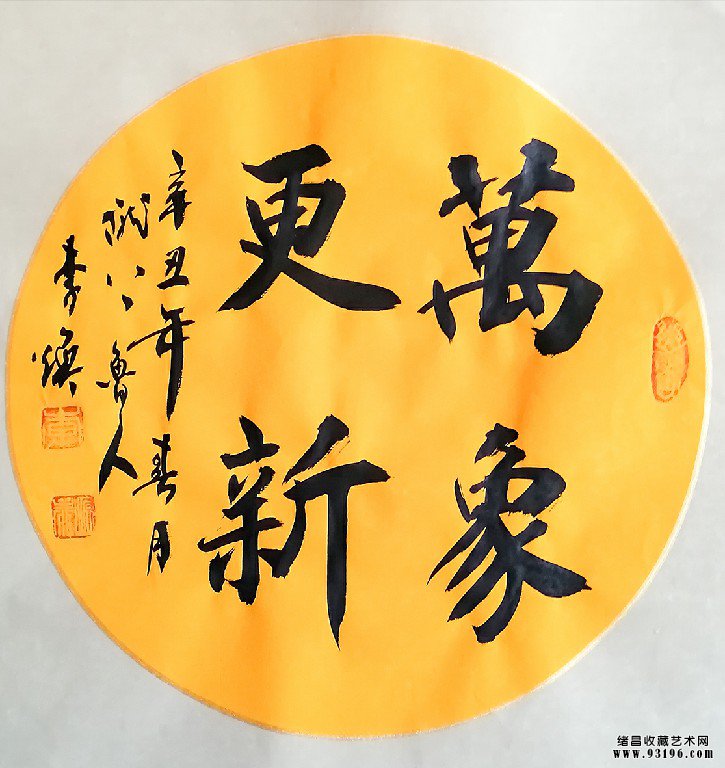 萬象
更新
辛丑年春月
魯人
李煥
绪昌收藏艺术网
www.93196.com